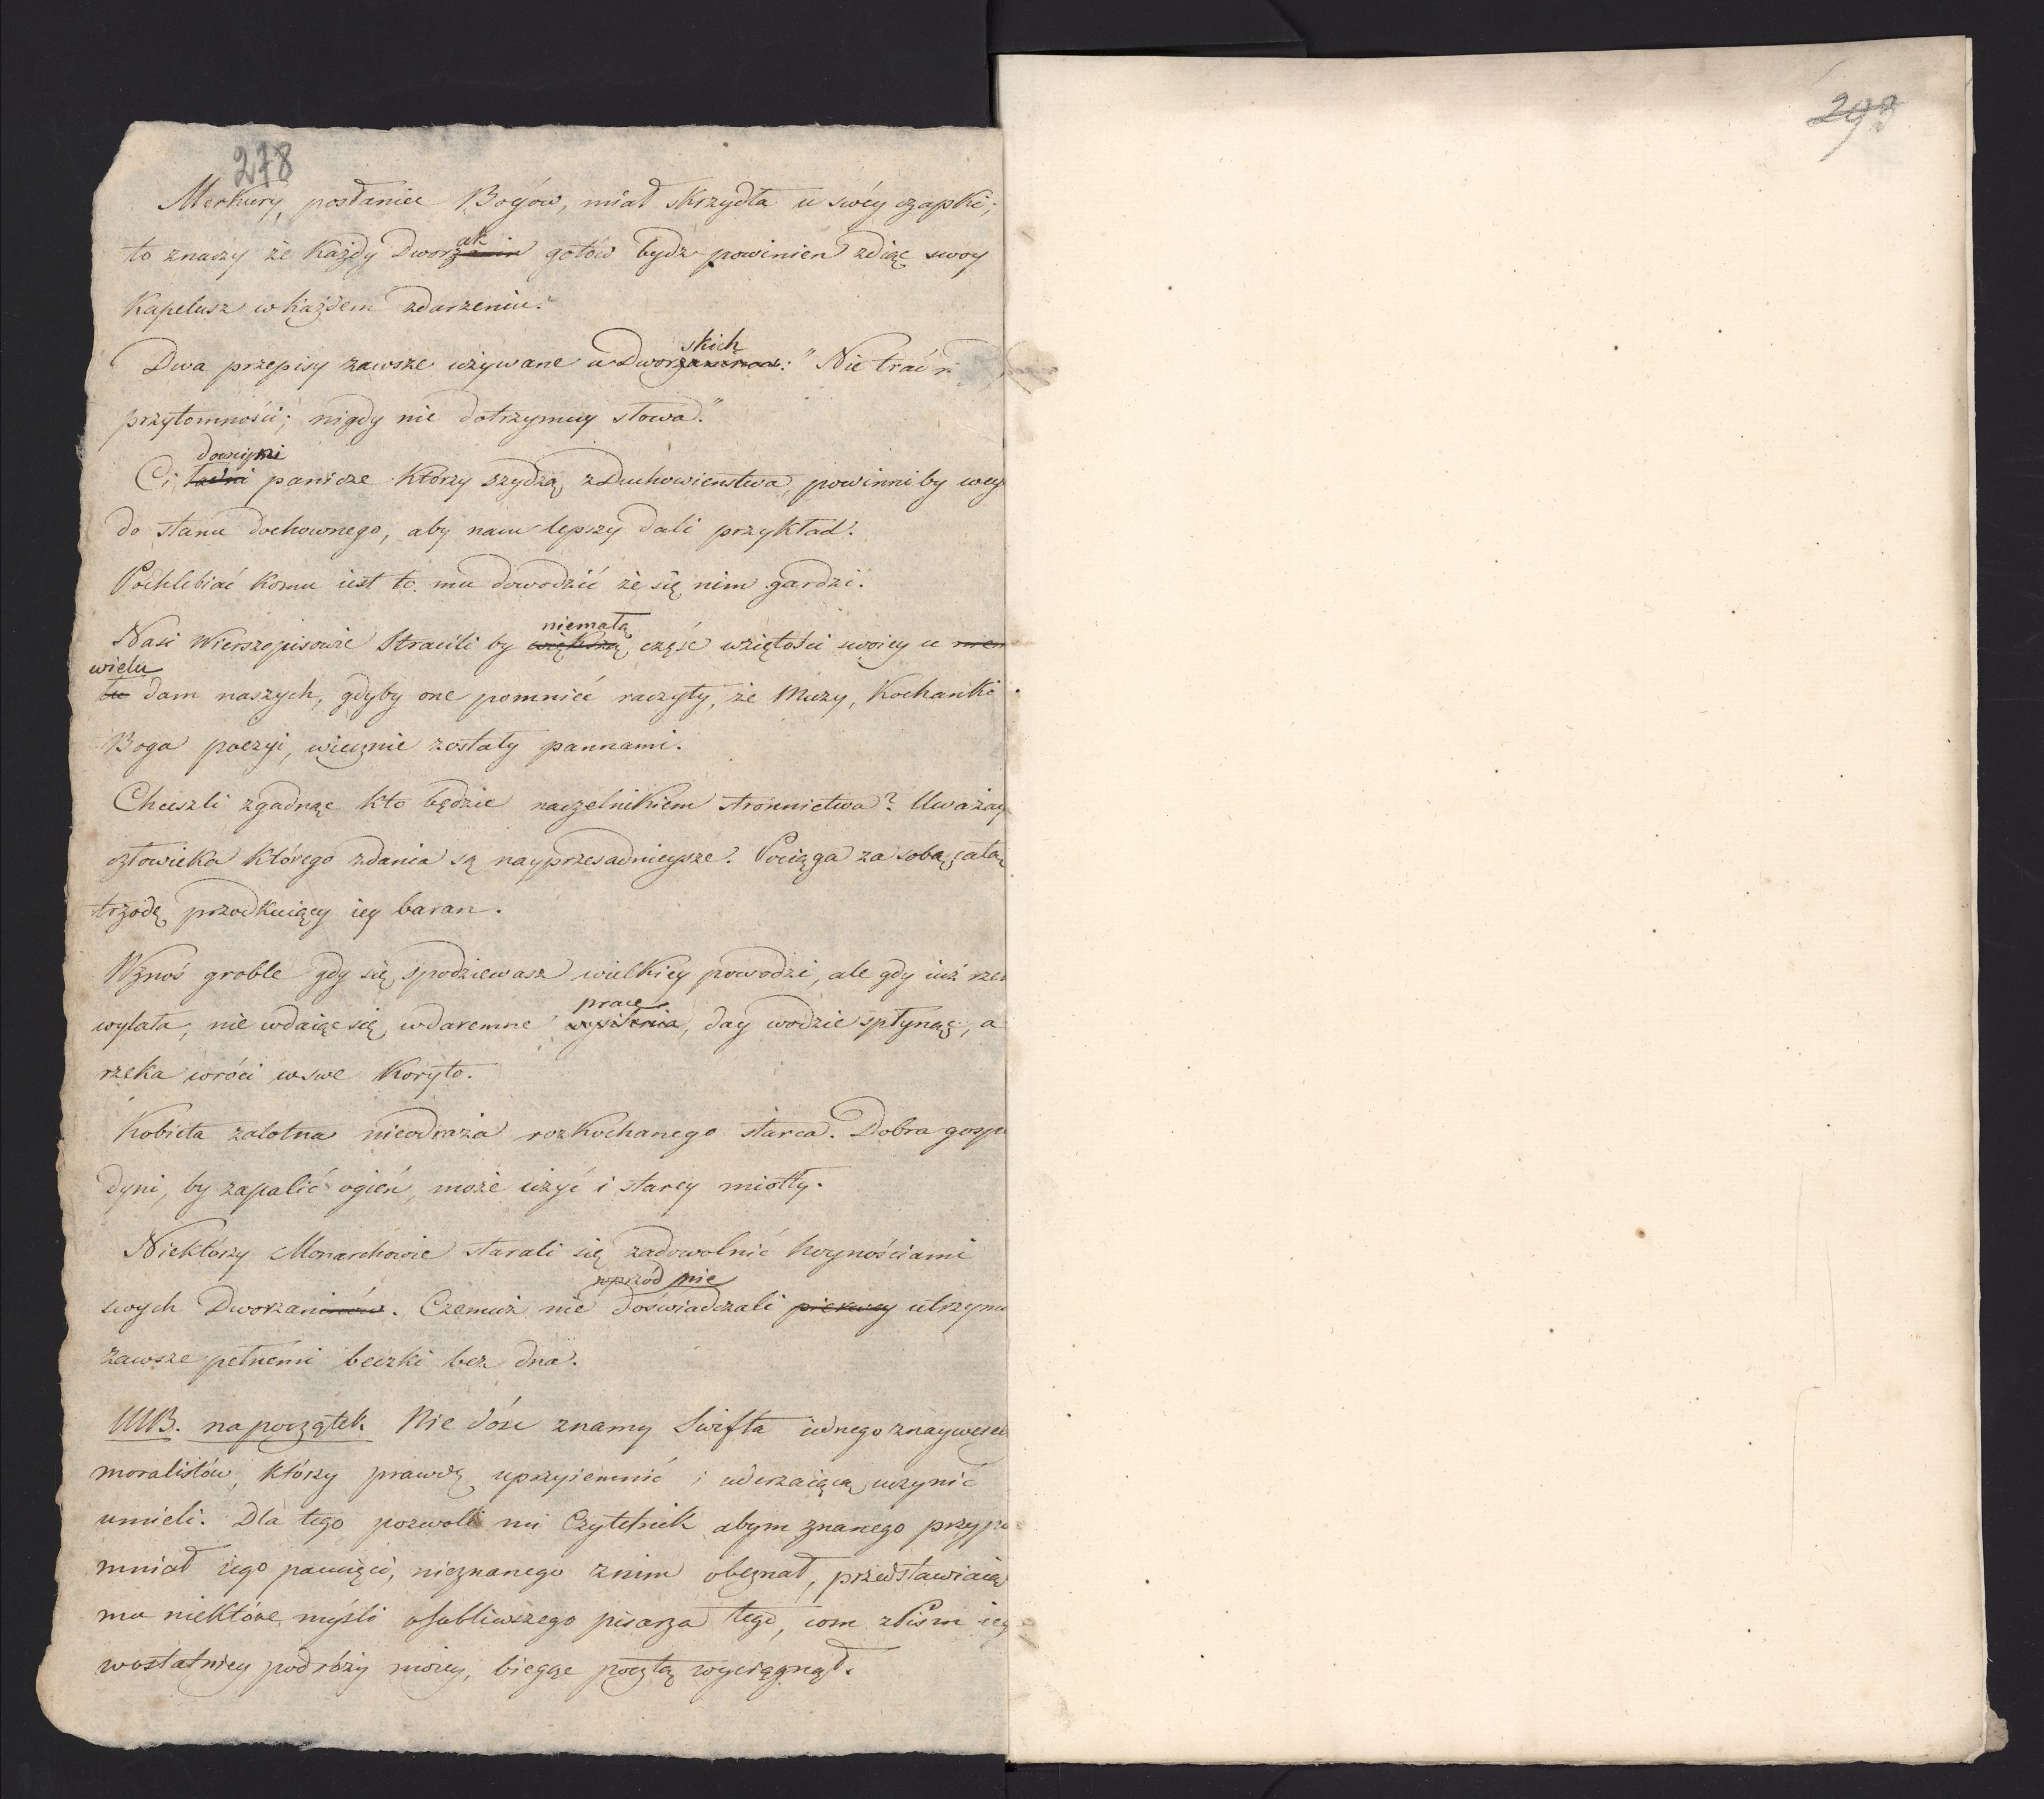 278
293
Merkury, posłaniec Bogów, miał skrzydła u swéy czapki;
ak
to znaczy że każdy Dworzanin gotów bydz powinien zdiąc swoy
Kapelusz w każdem zdarzeniu.
skich
Dwa przepisy zawsze używane u Dworzaninow: "Nie trać
przytomności; nigdy nie dotrzymuy słowa."
dowcipni
Ci ładni panicze którzy szydzą z Duchowienstwa, powinni by wey
do stanu dochownego, aby nam lepszy dali przykład.
Pochlebiać komu iest to mu dowodzić że się nim gardzi.
niemałą
Nasi Wierszopisowie Stracili by większą część wziętości swoiey u
wielu
tu dam naszych, gdyby one pomnieć raczyły, że Muzy, Kochanki
Boga poezyi, wiecznie zostały pannami.
Chceszli zgadnąc kto będzie naczelnikiem stronnictwa? Uważay
człowieka którego zdania są nayprzesadnieysze. Pociąga za sobą całą
trzodę przodkuiący iey baran.
Wznoś groble gdy się spodziewasz wielkiey powodzi, ale gdy iuż rze
pracę
wylała, nie wdaiąc się w daremne wysilenia, day wodzie spłynąc, a
rzeka wróci w swe Koryto.
Kobieta zalotna nieodraża rozkochanego starca. Dobra gospo
dyni, by zapalić ogień, może użyć i starey miotły.
Niektórzy Monarchowie starali się zadowolnić hoynościami
wprzód nie
swych Dworzaninów. Czemuż nie doświadczali pierwey utrzymać
zawsze pełnemi beczki bez dna.
NB. na początek Nie dość znamy Swifta iednego z naywesel
moralistów, którzy prawdę uprzyiemnić i uderzaiącą uczynić
umieli. Dla tego pozwoli mi Czytelnik abym znanego przypo
mniał iego pamięci, nieznanego z nim obeznał, przedstawiaiąc
mu niektóre myśli osobliwszego pisarza tego, com z Pism ieg
w ostatniey podróży moiey, biegąc pocztą wyciągnął.